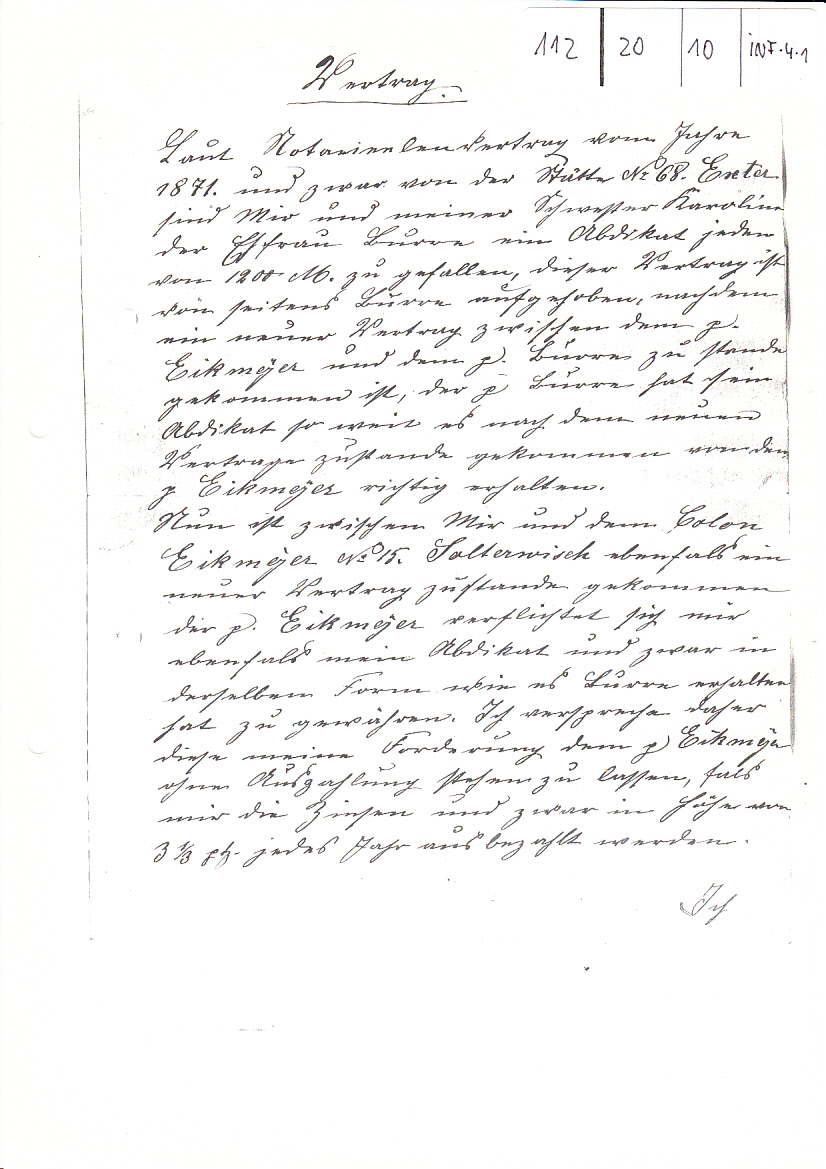 112 20 10 INF.4.1
Vertrag.
Laut Notarieelen Vertrag vom Jahre
1871. und zwar von der Stätte № 68. Exter
sind Mir und meiner Schwester Karoline
der Ehfrau Burre ein Abdikat jeden
von 1200 M. zu gefallen, dieser Vertrag ist
von seitens Burre aufgehoben, nachdem
ein neuer Vertrag zwischen dem p.
Eikmeÿer und dem p. Burre zu stande
gekommen ist, der p Burre hat sein
Abdikat so weit es nach dem neuen
Vertrage zustande gekommen von den
p Eikmeÿer richtig erhalten.
Nun ist zwischen Mir und dem Colon
Eikmeÿer № 15. Solterwisch ebenfals ein
neuer Vertrag zustande gekommen
der p. Eikmeÿer verflichtet sich mir
ebenfals mein Abdikat und zwar in
derselben Form wie es Burre erhalten
hat zu gewähren. Ich verspreche daher
diese meine Forderung dem p Eikmÿer
ohne Auszahlung stehen zu lassen, fals
mir die Zinsen und zwar in Höhe von
3 1/3 jedes Jahr ausbezahlt werden.
Ich